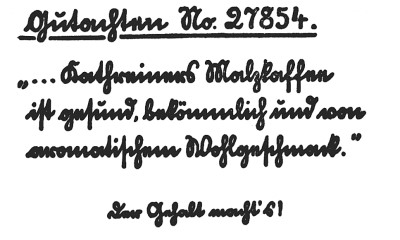 Gutachten No. 27854.
„... Kathreiners Malzkaffee
ist gesund, bekömmlich und von
aromatischem Wohlgeschmack.“
Der Gehalt macht's!